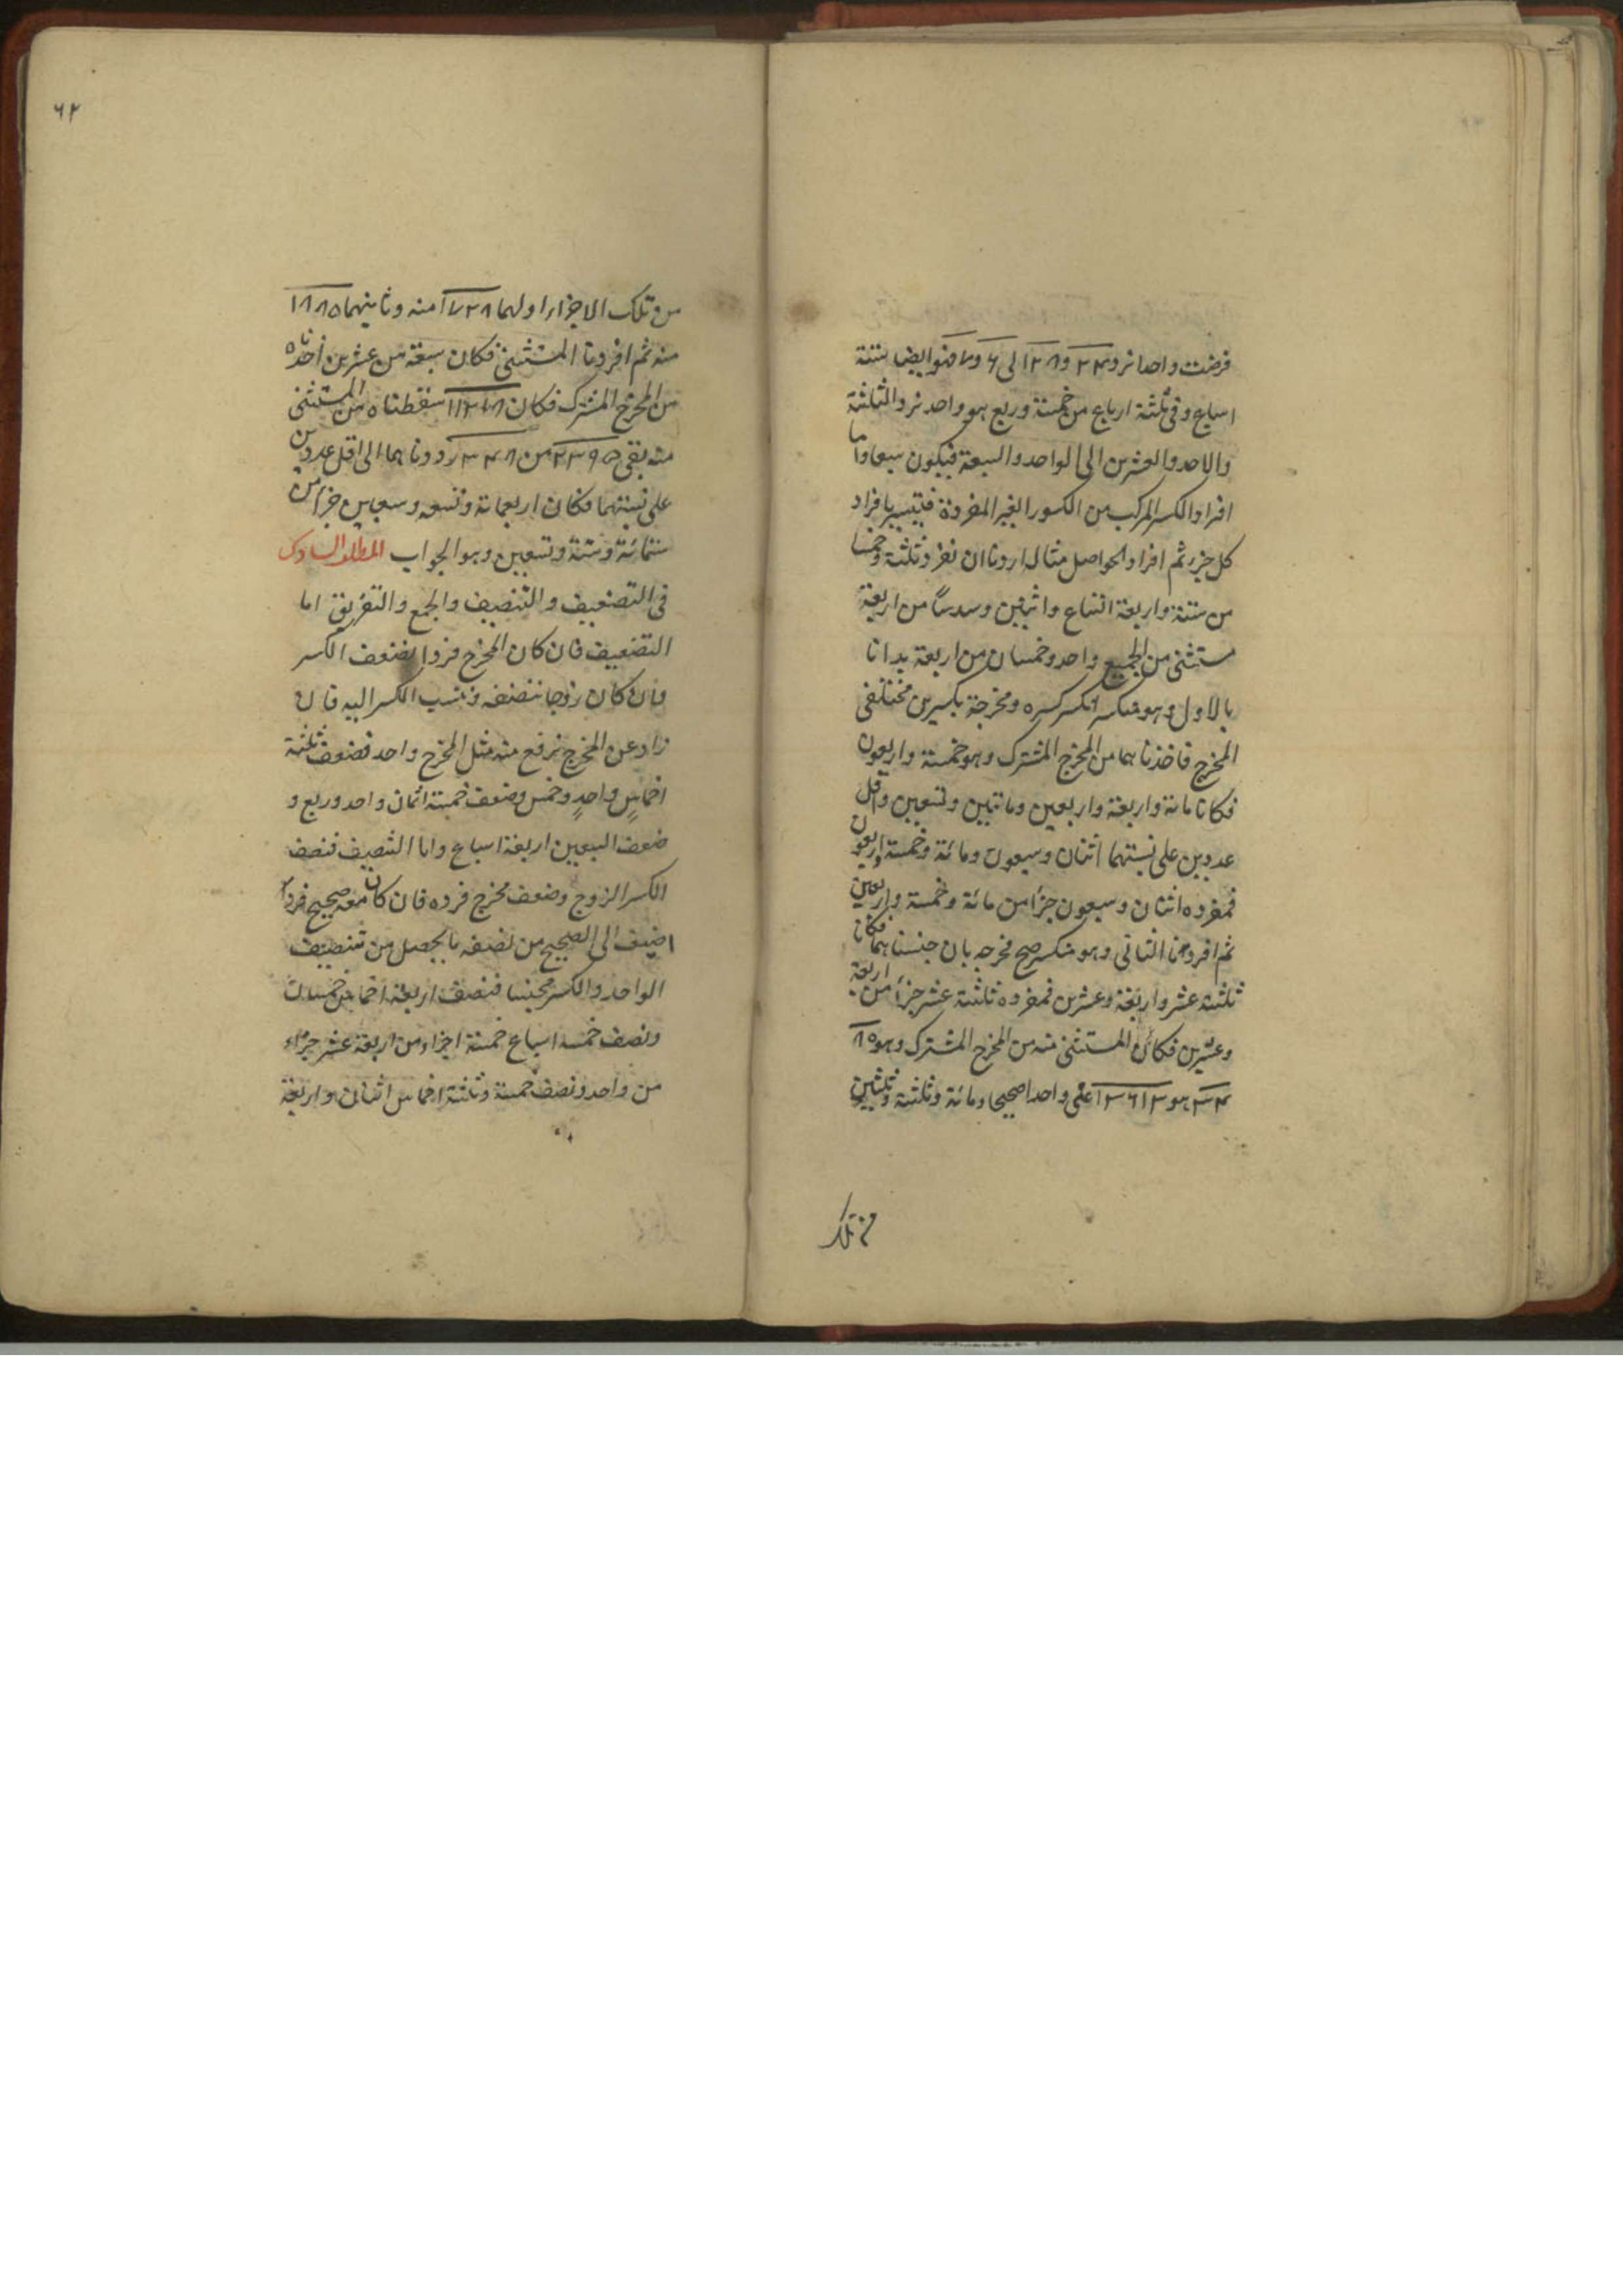 فرضت واحدا نرد ٢٤ و ٢٨ الى ٦ و ٧ فهو ايضا ستة
اسباع وفى ثلثة ارباع من خمسة وربع هو واحد نرد الثلثة
والاحد والعشرين الى الواحد والسبعة فيكون سبعا واما
افراد الكسر المركب من الكسور الغير المفردة فيتيسر بافراد
كل جزء ثم افراد الحواصل مثاله اردنا ان نفرد ثلثة وخمسا
من ستة واربعة اتساع واثنين وسدسا من اربعة
مستثنى من الجميع واحد وخمسان من اربعة بدانا
بالاول وهو منكسر انكسر كسره ومخرجة بكسرين مختلفى
المخرج فاخذناهما من المخرج المشترك وهو خمسة واربعون
فكانا مائة واربعة واربعين ومائتين وتسعين واقل
عددين على نسبتهما اثنان وسبعون ومائة وخمسة واربعون
فمفرده اثنان وسبعون جزأ من مائة وخمسة واربعين
ثم افردنا الثانى وهو منكسر صح مخرجه بان جنسناهما فكانا
ثلثة عشر واربعة وعشرين فمفرده ثلثة عشر جزأ من اربعة
وعشرين فكان المستثنى منه من المخرج المشترك وهو ٣٤٨٠
هو ٣٦١٣ اعنى واحدا صحيحا ومائة وثلثة وثلثين
من تلك
٦٢
من تلك الاجزاء اولهما ١٧٢٨ منه وثانيهما ١٨٨٥
منه ثم افردنا المستثنى فكان سبعة من عشرين اخذناه
من المخرج المشترك فكان ١٢١٨ اسقطناه من المستثنى
منه بقى ٢٣٩٥ من ٣٤٨٠ رددناهما الى اقل عددين
على نسبتهما فكان اربعمائة وتسعه وسبعين جزأ من
ستمائة وستة وتسعين وهو الجواب المطلب السادس
فى التضعيف والتنصيف والجمع والتفريق اما
التضعيف فان كان المخرج فردا نضعف الكسر
وان كان زوجا ننصفه وننسب الكسر اليه فان
زاد عن المخرج نرفع منه مثل المخرج واحد فضعف ثلثة
اخماسٍ واحدٍ وخمس وضعف خمسة اثمان واحد وربع و
ضعف السبعين اربعة اسباع واما التنصيف فنصف
الكسر الزوج وضعف مخرج فرده فان كان معه صحيح فردا
اضيف الى الصحيح من نصفه ما يحصل من تنصيف
الواحد والكسر مجنسا فنصف اربعة اخماس خمسان
ونصف خمسة اسباع خمسة اجزاء من اربعة عشر جزء
من واحد ونصف خمسة وثلثة اخماس اثنان واربعة